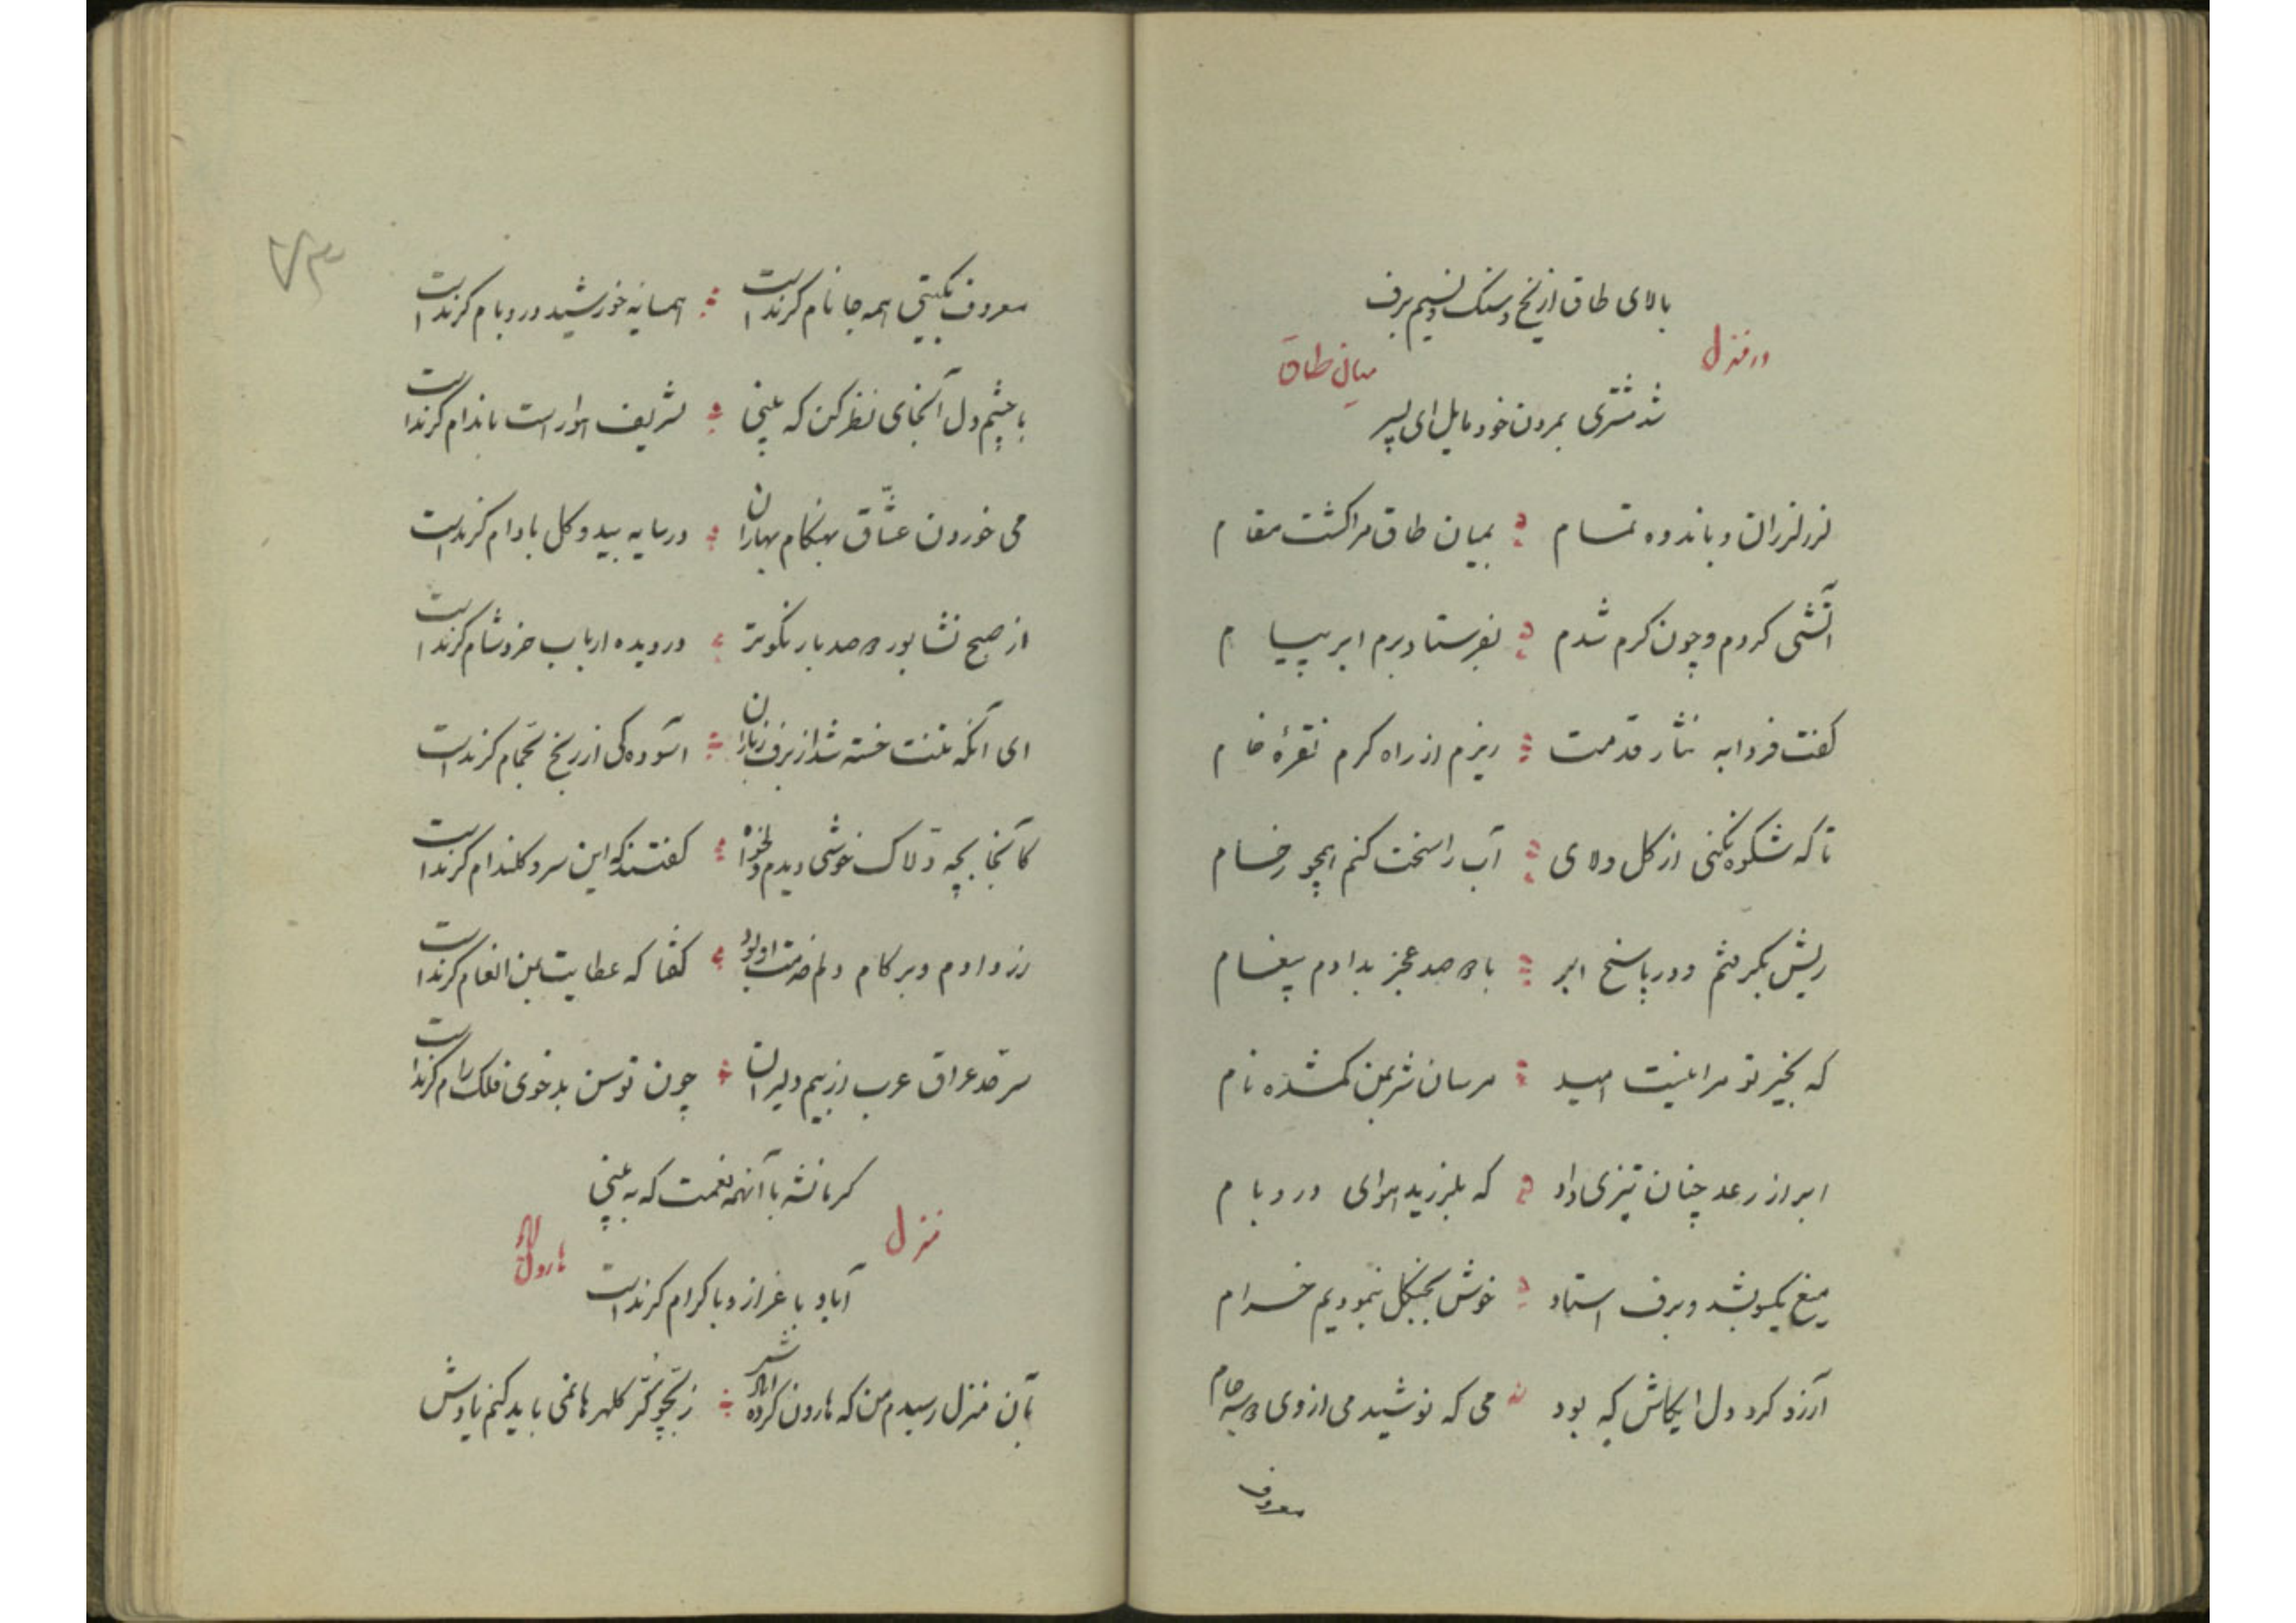 بالای طاق از یخ و سنگ و نسیم برف
در منزل
میان طاق
شد مشتری بمردن خود مایل ای پسر
لرز لرزان و باندوه تمام بمیان طاق مرا گشت مقام
آتشی کردم و چون گرم شدم بفرستاد برم ابر پیام
گفت فردا به نثار قدمت ریزم از راه کرم نقرهٔ خام
تا که شکوه نکنی از گل و لای آب را سخت کنم همچو رخام
ریش بگرفتم و در پاسخ ابر با دو صد عجز بدادم پیغام
که بخیر تو مرا نیست امید مرسان شر بمن گمشده نام
ابر از رعد چنان تیزی داد که بلرزید هوای در و بام
میغ یکسو بشد و برف استاد خوش بجنگل بنمودیم خرام
آرزو کرد دل ایکاش که بود می که نوشید می از وی دو سه جام
معروف
۷۳
معروف بگیتی همه جا نام کرند است همسایه خورشید در و بام کرند است
با چشم دل آنجای نظر کن که ببینی تشریف هوا راست باندام کرند است
می خوردن عشاق بهنگام بهاران در سایه بید و گل بادام کرند است
از صبح نشابور دو صد بار نکوتر در دیده ارباب خرد شام کرند است
ای آنکه تنت خسته شد از برف زباران آسوده کی از رنج تو حمام کرند است
کآنجا بچه دلاک خوشی دیدم و دلخواه گفتند که این سرو گلندام کرند است
زر دادم و بر کام دلم خدمت او بود گفتا که عطایت بمن انعام کرند است
سر حد عراق عرب از بیم دلیران چون توسن بدخوی فلک رام کرند است
کرمانشه با آنهمه نعمت که به بینی
منزل
هارون آباد
آباد با عزاز و باکرام کرند است
بآن منزل رسیدم من که هارون کرده آبادش